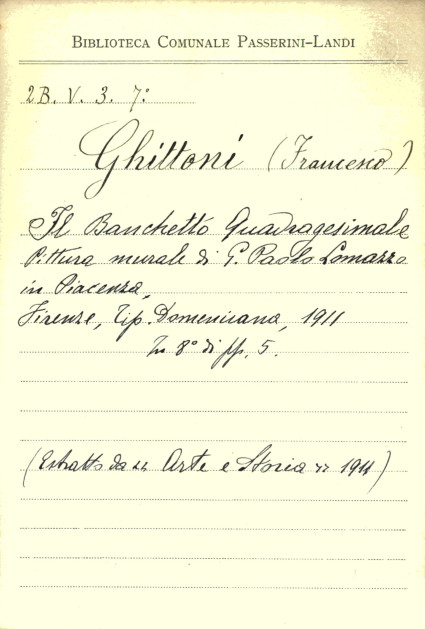 BIBLIOTECA COMUNALE PASSERINI-LANDI
2B. V. 3. 7°
Ghittoni (Francesco)
Il Banchetto Quadragesimale
Pittura murale di G. Paolo Lomazzo
in Piacenza,
Firenze, Tip. Domenicana, 1911
In 8° di pp. 5.
(Estratto da "Arte e Storia" 1911)